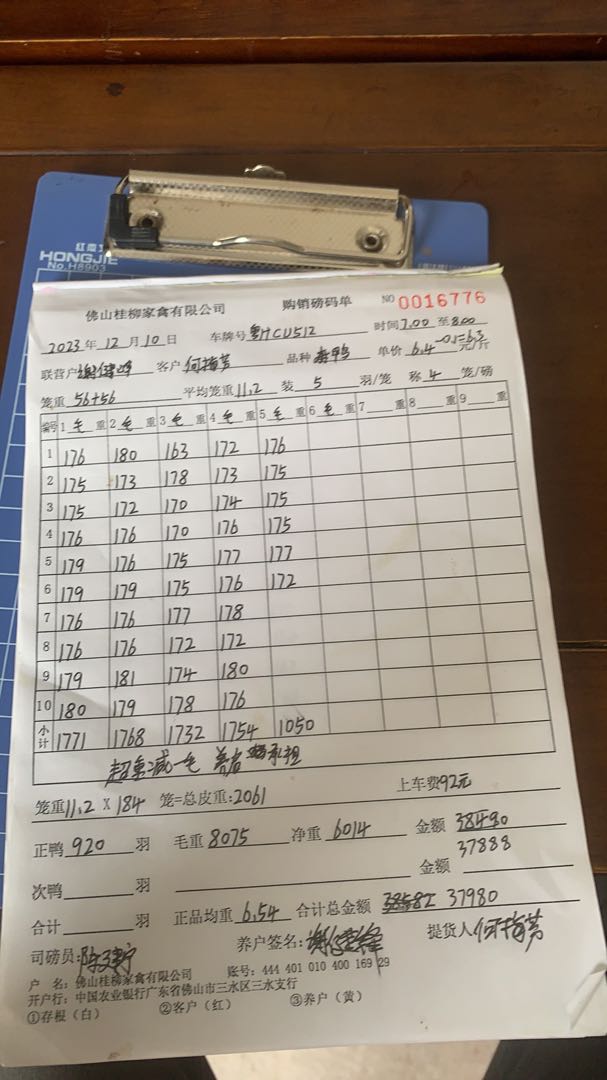 HONGJIE
No.H8903
佛山桂柳家禽有限公司 购销磅码单 NO 0016776
2023 年 12 月 10 日 车牌号 粤HCU512 时间 7.00 至 8.00
联营户 客户 何梅芳 品种 单价 6.4-0.1=6.3 元/斤
笼重 56+56 平均笼重 11.2 装 5 羽/笼 称 4 笼/磅
编号 1 毛 重 2 毛 重 3 毛 重 4 毛 重 5 毛 重 6 毛 重 7 重 8 重 9 重
1 176 180 163 172 176
2 175 173 178 173 175
3 175 172 170 174 175
4 176 176 170 176 175
5 179 176 175 177 177
6 179 179 175 176 172
7 176 176 177 178
8 176 176 172 172
9 179 181 174 180
10 180 179 178 176
小计 1771 1768 1732 1754 1050
减一毛 承担
笼重 11.2 X 184 笼=总皮重:2061 上车费92元
正鸭 920 羽 毛重 8075 净重 6014 金额
37888
次鸭 羽 金额
合计 羽 正品均重 6.54 合计总金额 37980
司磅员: 养户签名: 提货人 何梅芳
户 名:佛山桂柳家禽有限公司 账号:444 401 010 400 169 29
开户行:中国农业银行广东省佛山市三水区三水支行
①存根(白) ②客户(红) ③养户(黄)